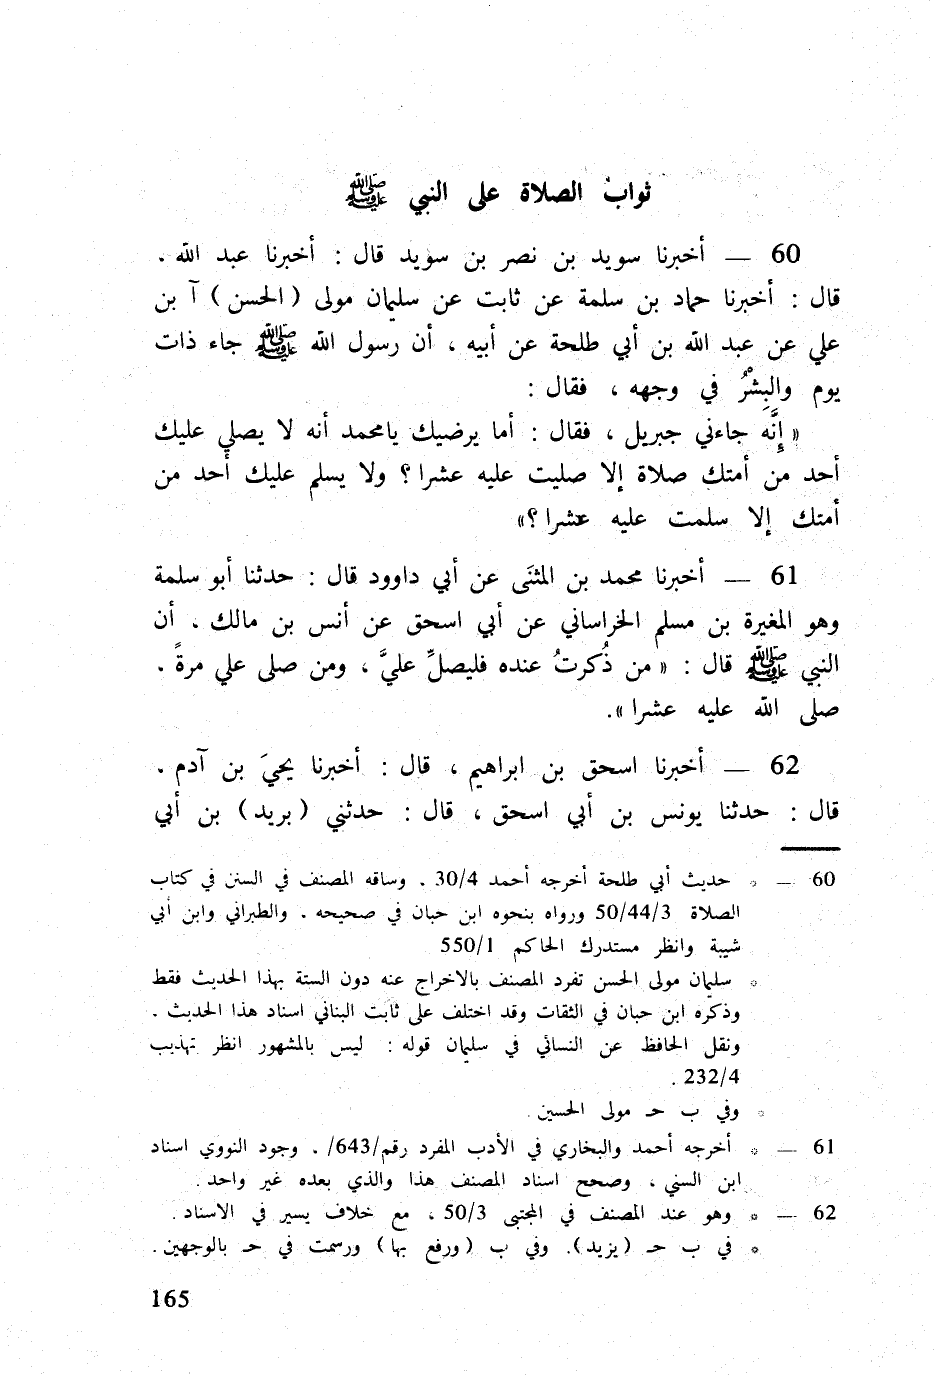 ثوابُ الصلاة على النبي ﷺ
60 — أخبرنا سويد بن نصر بن سويد قال : أخبرنا عبد الله .
قال : أخبرنا حماد بن سلمة عن ثابت عن سليمان مولى ( الحسن ) آ بن
علي عن عبد الله بن أبي طلحة عن أبيه ، أن رسول الله ﷺ جاء ذات
يوم والبِشْرُ في وجهه ، فقال :
« إنَّه جاءني جبريل ، فقال : أما يرضيك يامحمد أنه لا يصلي عليك
أحد من أمتك صلاة إلا صليت عليه عشرا ؟ ولا يسلم عليك أحد من
أمتك إلا سلمت عليه عشرا ؟»
61 — أخبرنا محمد بن المثنَى عن أبي داوود قال : حدثنا أبو سلمة
وهو المغيرة بن مسلم الخراساني عن أبي اسحق عن أنس بن مالك . أن
النبي ﷺ قال : « من ذُكرتُ عنده فليصلِّ عليَّ ، ومن صلى علي مرةً .
صلى الله عليه عشرا ».
62 — أخبرنا اسحق بن ابراهيم ، قال : أخبرنا يحيَ بن آدم .
قال : حدثنا يونس بن أبي اسحق ، قال : حدثني ( بريد ) بن أبي
60 — * حديث أبي طلحة أخرجه أحمد 30/4 . وساقه المصنف في السنن في كتاب
الصلاة 50/44/3 ورواه بنحوه ابن حبان في صحيحه . والطبراني وابن أبي
شيبة وانظر مستدرك الحاكم 550/1
* سليمان مولى الحسن تفرد المصنف بالاخراج عنه دون الستة بهذا الحديث فقط
وذكره ابن حبان في الثقات وقد اختلف على ثابت البناني اسناد هذا الحديث .
ونقل الحافظ عن النسائي في سليمان قوله : ليس بالمشهور انظر تهذيب
232/4 .
* وفي ب حـ مولى الحسين .
61 — * أخرجه أحمد والبخاري في الأدب المفرد رقم/643/ . وجود النووي اسناد
ابن السني ، وصحح اسناد المصنف هذا والذي بعده غير واحد .
62 — * وهو عند المصنف في المجتبى 50/3 ، مع خلاف يسير في الاسناد .
* في ب حـ ( يزيد ). وفي ب ( ورفع بها ) ورسمت في حـ بالوجهين .
165